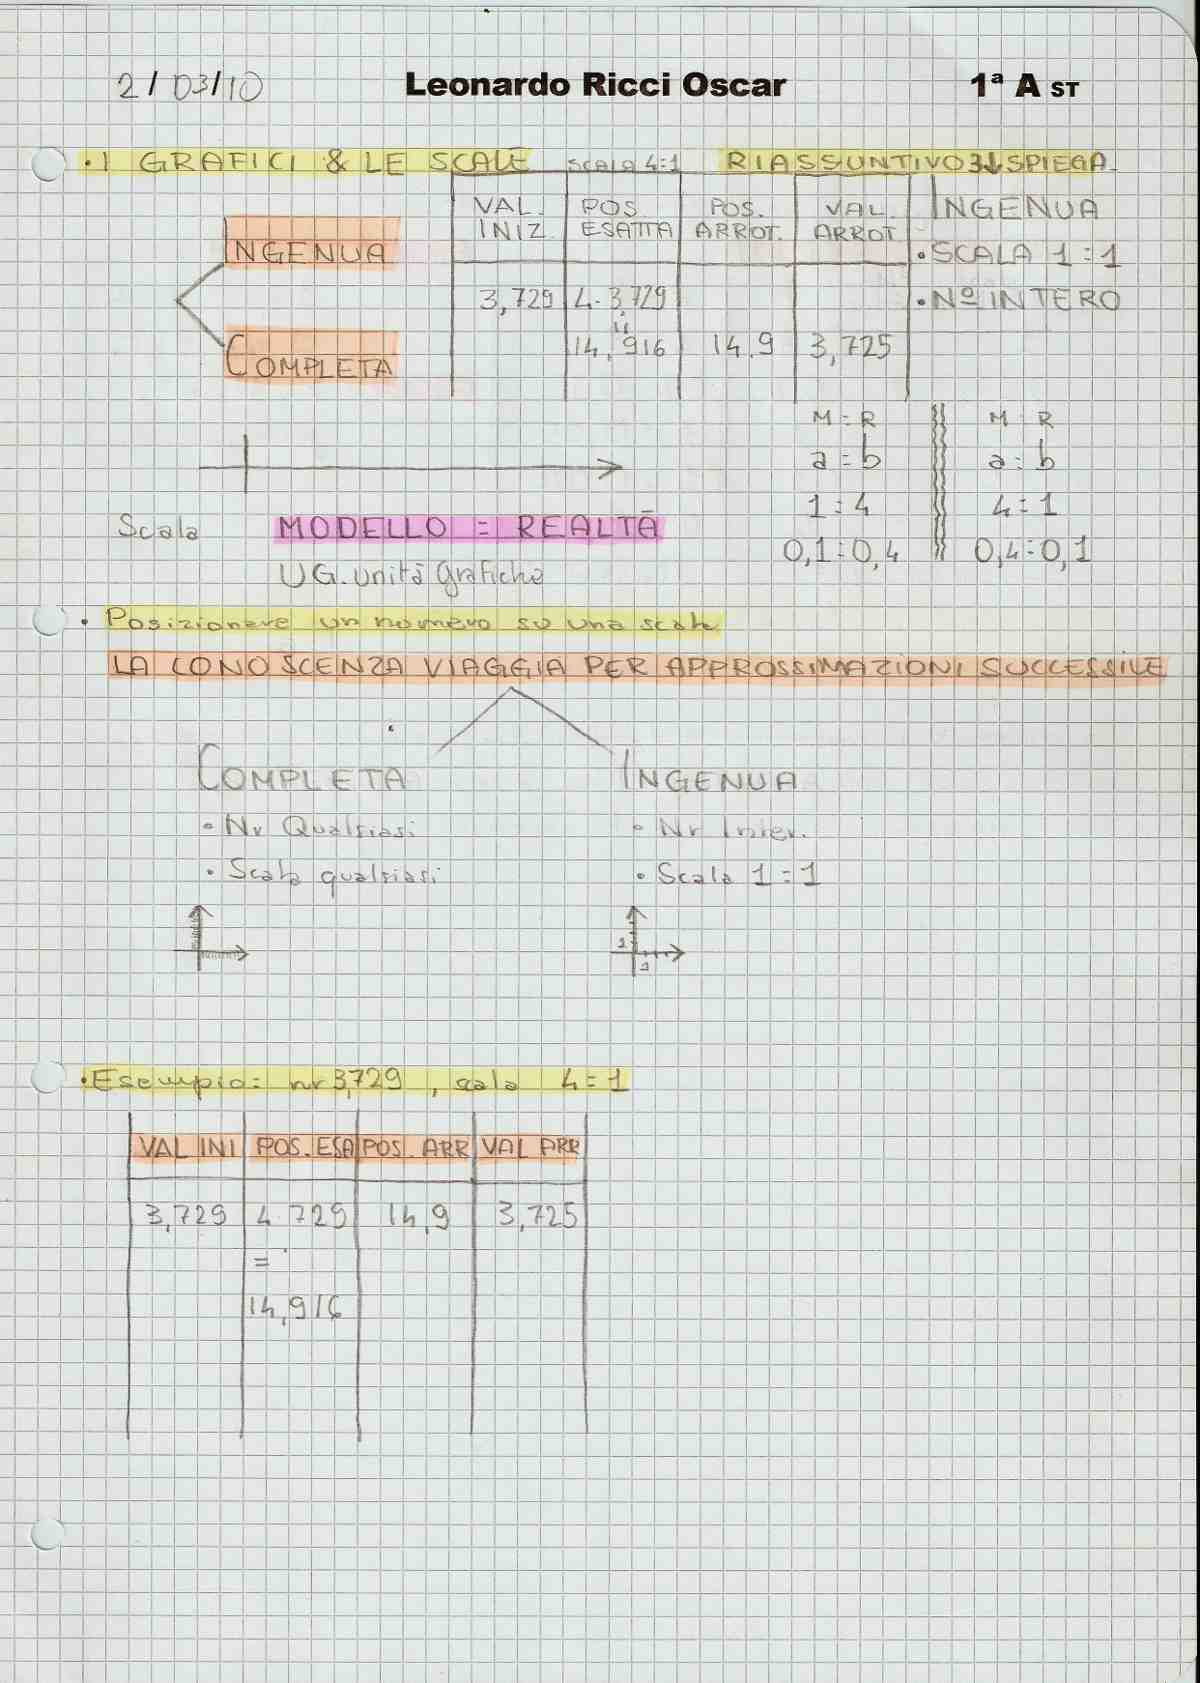 2/03/10 Leonardo Ricci Oscar 1ª A ST
• I GRAFICI & LE SCALE SCALA 4:1 RIASSUNTIVO 3↓ SPIEGA
VAL. INIZ. POS. ESATTA POS. ARROT. VAL. ARROT. INGENUA
INGENUA • SCALA 1:1
3,729 4·3,729 • Nº INTERO
"
COMPLETA 14,916 14,9 3,725
M:R M:R
a:b a:b
1:4 4:1
Scala MODELLO : REALTÀ
0,1:0,4 0,4:0,1
UG. unità grafiche
• Posizionare un numero su una scala
LA CONOSCENZA VIAGGIA PER APPROSSIMAZIONI SUCCESSIVE
COMPLETA INGENUA
• Nr Qualsiasi • Nr Inter.
• Scala qualsiasi • Scala 1:1
1
1
• Esempio: nr 3,729, scala 4:1
VAL INI POS. ESA POS. ARR VAL ARR
3,729 4 729 14,9 3,725
=
14,916